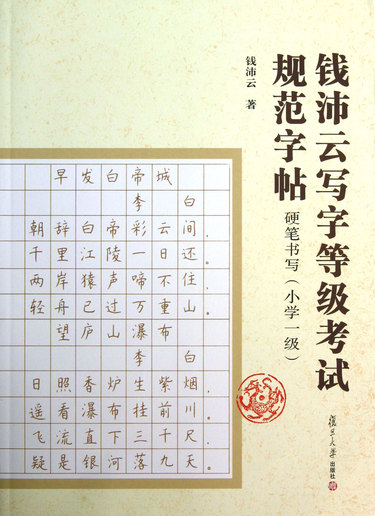 钱沛云写字等级考试
规范字帖
硬笔书写（小学一级）
钱沛云 著
早发白帝城
李白
朝辞白帝彩云间，
千里江陵一日还。
两岸猿声啼不住，
轻舟已过万重山。
望庐山瀑布
李白
日照香炉生紫烟，
遥看瀑布挂前川。
飞流直下三千尺，
疑是银河落九天。
復旦大學出版社